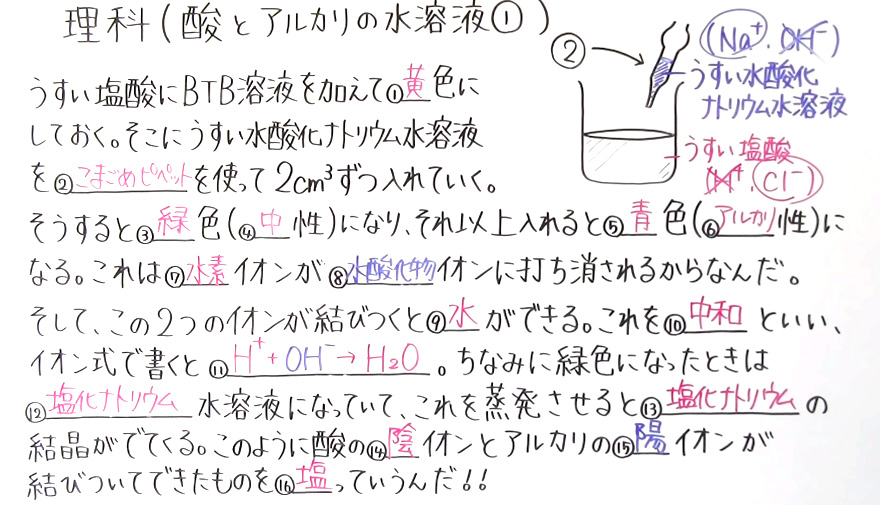 理科(酸とアルカリの水溶液①)
②
(Na⁺・OH⁻)
うすい水酸化
ナトリウム水溶液
うすい塩酸
(H⁺・Cl⁻)
うすい塩酸にBTB溶液を加えて①黄色に
しておく。そこにうすい水酸化ナトリウム水溶液
を②こまごめピペットを使って2cm³ずつ入れていく。
そうすると③緑色(④中性)になり、それ以上入れると⑤青色(⑥アルカリ性)に
なる。これは⑦水素イオンが⑧水酸化物イオンに打ち消されるからなんだ。
そして、この2つのイオンが結びつくと⑨水ができる。これを⑩中和といい、
イオン式で書くと⑪H⁺+OH⁻→H₂O。ちなみに緑色になったときは
⑫塩化ナトリウム水溶液になっていて、これを蒸発させると⑬塩化ナトリウムの
結晶がでてくる。このように酸の⑭陰イオンとアルカリの⑮陽イオンが
結びついてできたものを⑯塩っていうんだ!!